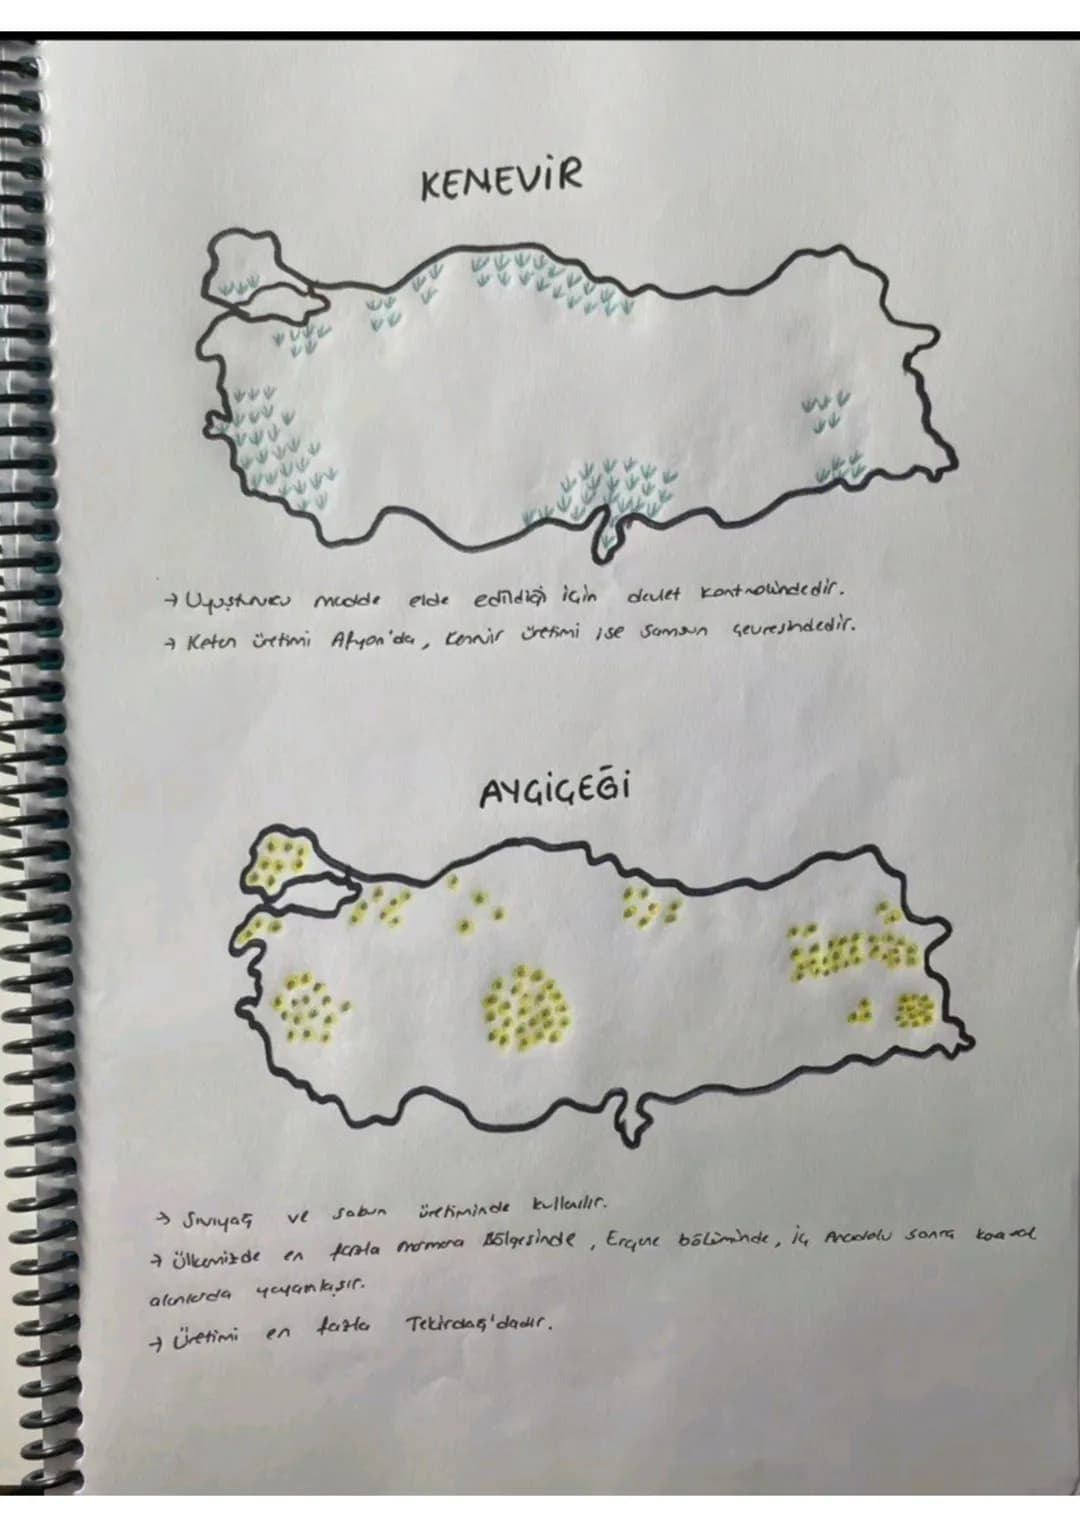 KENEVİR
→ Uyuşturucu madde elde edildiği için devlet kontrolündedir.
→ Keten üretimi Afyon'da, kenevir üretimi ise Samsun çevresindedir.
AYÇİÇEĞİ
→ Sıvıyağ ve sabun üretiminde kullanılır.
→ Ülkemizde en fazla Marmara Bölgesinde, Ergene bölümünde, iç Anadolu sonra
alanlarda
→ Üretimi en fazla Tekirdağ'dadır.